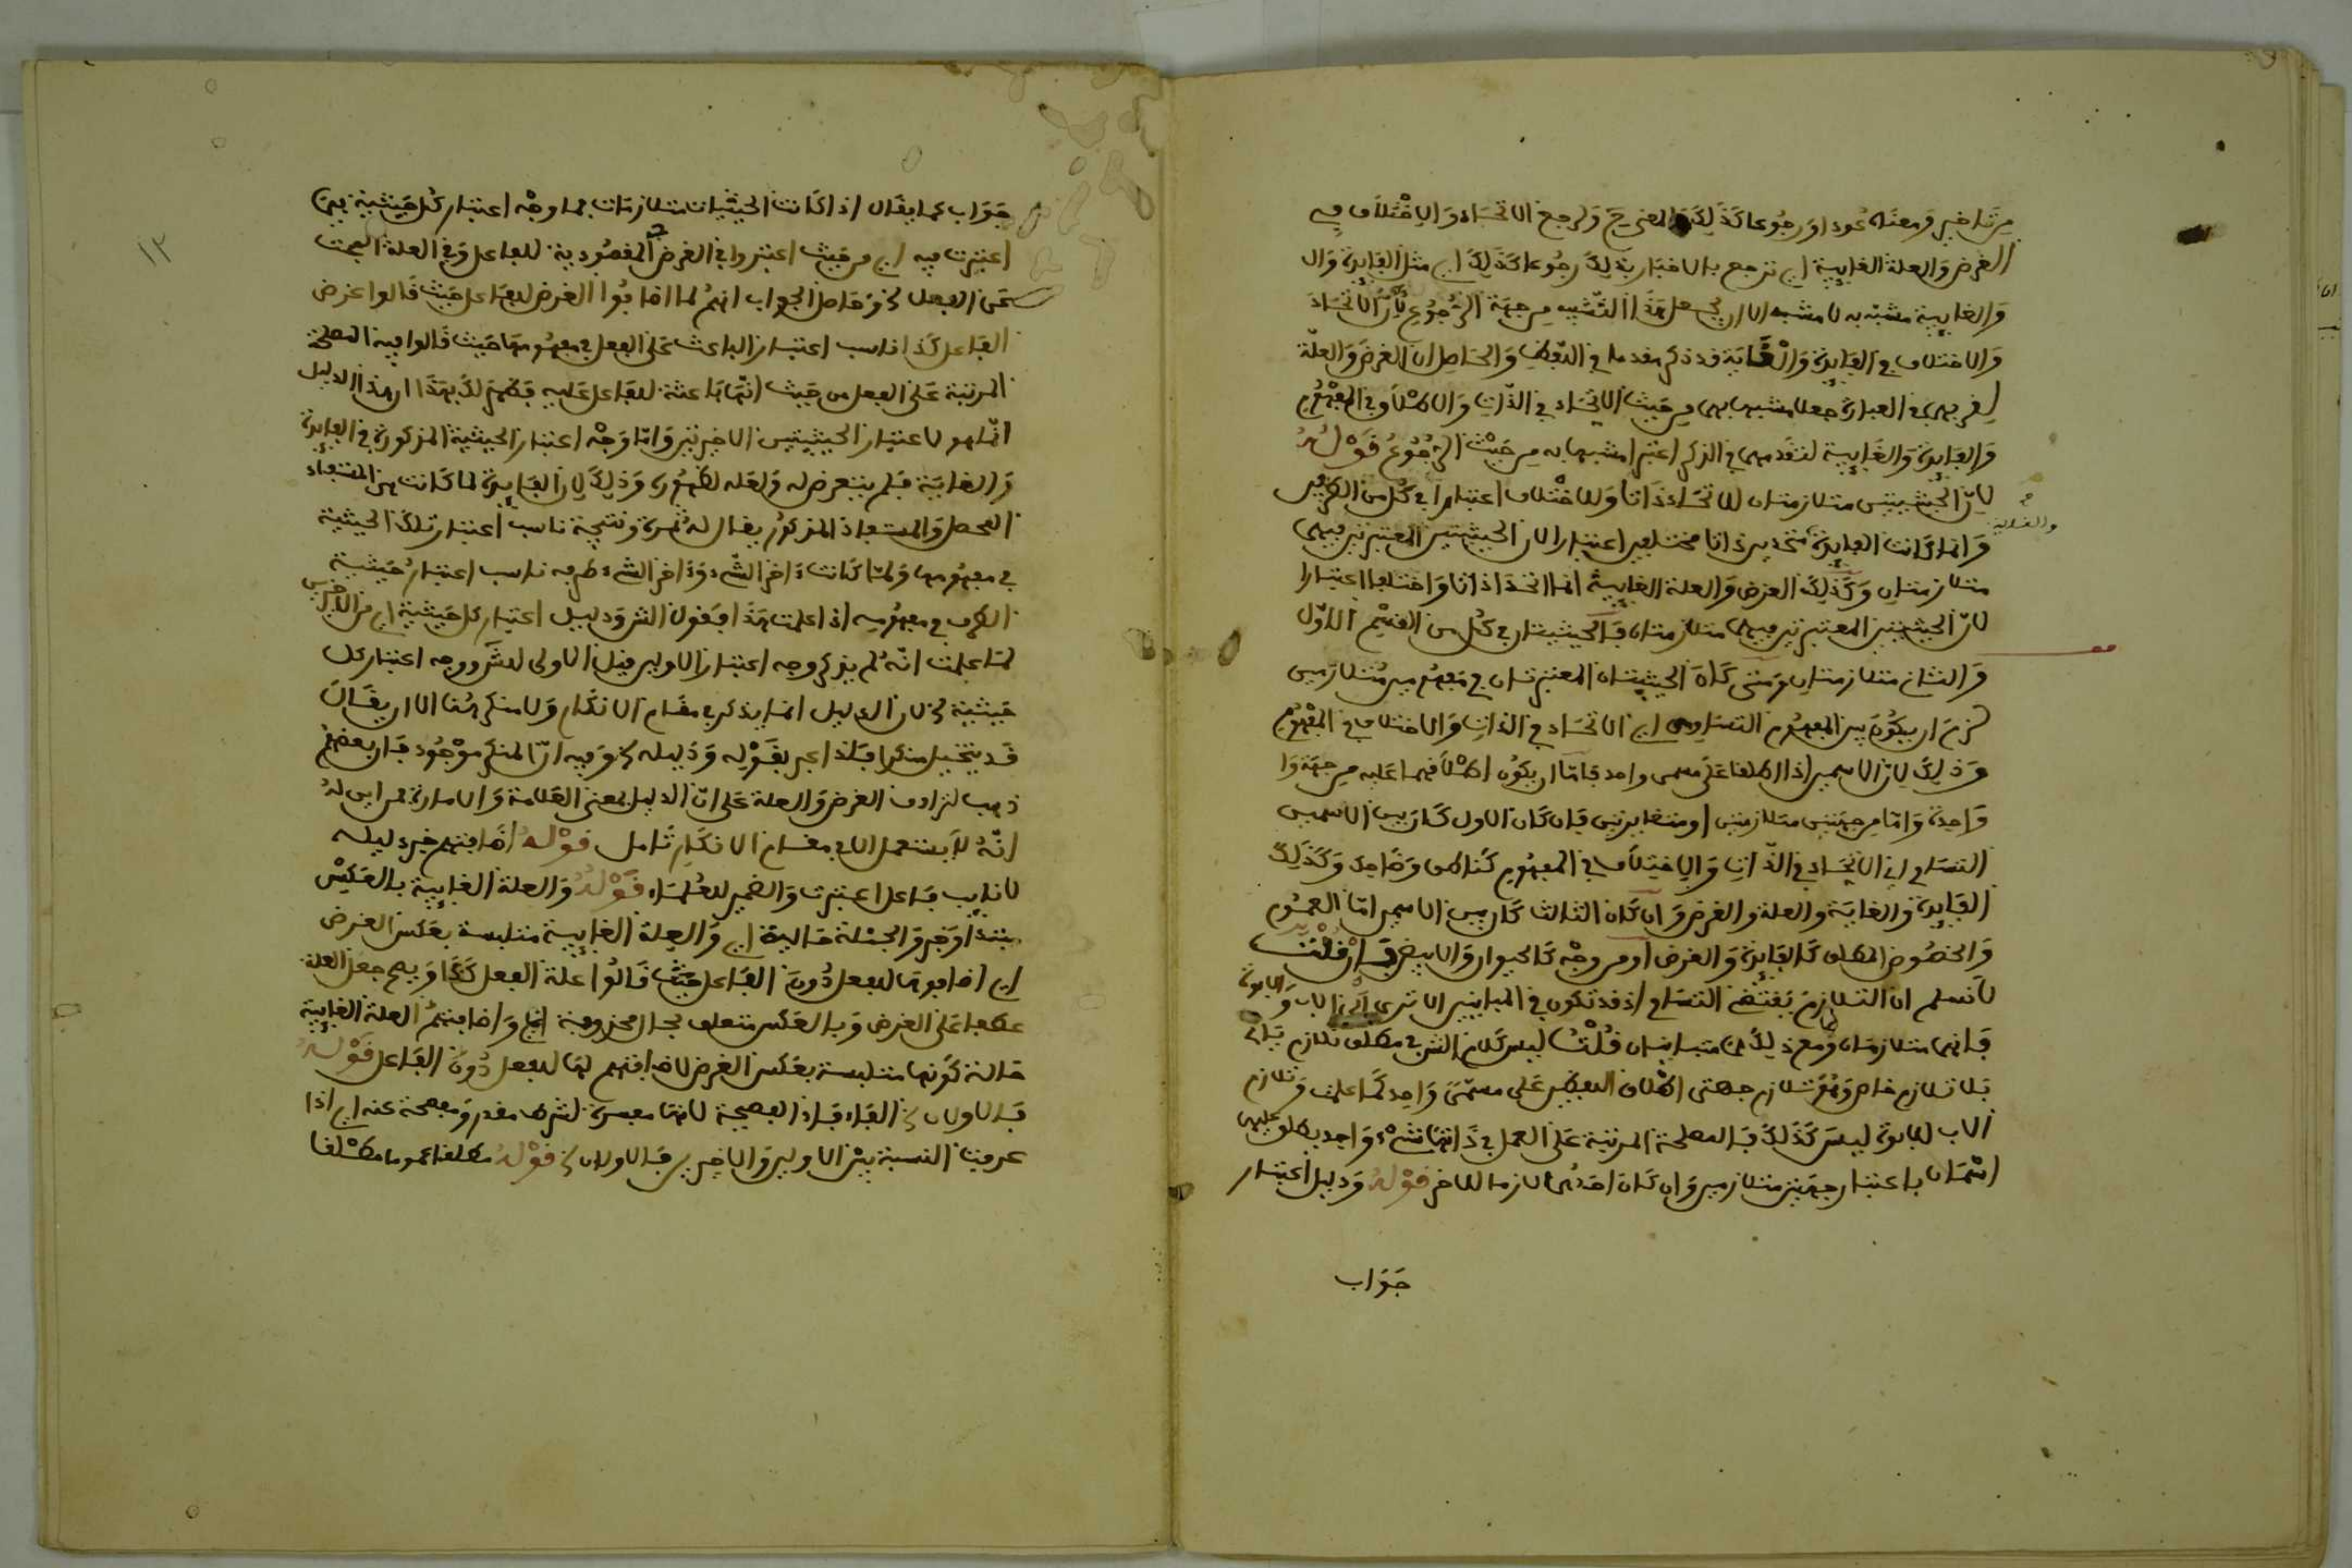 من تاخير ومعناه عودا ورجوعا كذلك المعنى ورجع الاتحاد والاختلاف في
الغرض والعلة الغايية اي نرجع بالاخبار بذلك رجوعا كذلك اي مثل الفايدة وال
والغايية مشبه به لا مشبه الا ان يجعل هذا التشبيه من جهة الرجوع لان الاتحاد
والاختلاف في الفايدة والغاية قد ذكر مقدما في اللفظ والحاصل ان الغرض والعلة
جعلا مشبهاهما من حيث الاتحاد في الذات والاختلاف في المفهوم
والفايدة والغايية لتقدمهما في الذكر اعتبرا مشبها به من حيث الرجوع قوله
لان الحيثيتين متلازمتان للاتحاد ذاتا وللاختلاف اعتبارا في كل من الطرفين
والغاية
وانما كانت الفايدة متحدين ذاتا مختلفين اعتبارا لان الحيثيتين المعتبرتين فيهما
متلازمتان وكذلك الغرض والعلة الغايية انما اتحدا ذاتا واختلفا اعتبارا
لان الحيثيتين المعتبرتين فيهما متلازمتان فالحيثيتان في كل من القسم الاول
والثاني متلازمتان ومتى كان الحيثيتان المعتبرتان في مفهومين متلازمين
لزم ان يكون بين المفهومين التساوي اي الاتحاد في الذات والاختلاف في المفهوم
وذلك لان الاسمين اذا اطلقا على مسمى واحد فاما ان يكون اطلاقهما عليه من جهة وا
واحدة واما من جهتين متلازمتين او متغايرتين فان كان الاول كان بين الاسمين
التساوي اي الاتحاد في الذات والاختلاف في المفهوم كناطق وضاحك وكذلك
الفايدة والغاية والعلة والغرض وان كان الثالث كان بين الاسمين اما العموم
والخصوص المطلق كالفايدة والغرض او من وجه كالحيوان والابيض فان قلت
لا نسلم ان التلازم يقتضي التساوي اذ قد تكون في المباينين الا ترى الى الاب والابوة
فانهما متلازمان ومع ذلك هما متباينان قلت ليس كلام الشارح في مطلق تلازم
بل تلازم خاص وهو تلازم جهتي اطلاق اللفظين على مسمى واحد كما علمت وتلازم
الاب للابوة ليس كذلك فالمصلحة المرتبة على العمل في ذاتها شيء واحد يطلق عليها
اسمان باعتبار جهتين متلازمين وان كان احدهما لازما للاخر قوله ودليل اعتبار
جواب
جواب عما يقال اذا كانت الحيثيات متلازمات فما وجه اعتبار كل حيثية فيما
اعتبرت فيه اي من حيث اعتبروا في الغرض المقصودية للفاعل وفي العلة البعث
على الفعل وحاصل الجواب انهم لما اضافوا الغرض للفاعل حيث قالوا غرض
الفاعل كذا ناسب اعتبار الباعث على الفعل في مفهومها حيث قالوا فيه المصلحة
المرتبة على الفعل من حيث انها باعثة للفاعل عليه فظهر لك بهذا ان هذا الدليل
انما هو لاعتبار الحيثيتين الاخيرتين واما وجه اعتبار الحيثية المذكورة في الفايدة
والغاية فلم يتعرض له ولعله لظهوره وذلك لان الفايدة لما كانت هي المستفاد
المحصل والمستفاد المذكور يقال له ثمرة ونتيجة ناسب اعتبار تلك الحيثية
في مفهومها ولما كانت اخر الشيء واخر الشيء طرفه ناسب اعتبار حيثية
الطرف في مفهومه اذا علمت هذا فقول الشارح ودليل اعتبار كل حيثية اي من الاخيرتين
لما علمت انه لم يذكر وجه اعتبار الاولين قبل الاولى للشارح ووجه اعتبار كل
حيثية لان الدليل انما يذكر في مقام الانكار ولا منكر هنا الا ان يقال
قد يتخيل منكرا فلذا عبر بقوله ودليله وفيه ان المنكر موجود فان بعضهم
ذهب لترادف الغرض والعلة على ان الدليل بمعنى العلامة والامارة فمن اين له
انه لا يستعمل الا في مقام الانكار تامل قوله اضافتهم خبر دليله
لا نايب فاعل اعتبرت والضمير للعلماء قوله والعلة الغايية بالعكس
مبتدا وخبر والجملة حالية اي والعلة الغايية متلبسة بعكس الغرض
اي اضافوها للفعل دون الفاعل حيث قالوا علة الفعل كذا ويصح جعل العلة
عطفا على الغرض وبالعكس متعلق بحال محذوفة اي واضافتهم العلة الغايية
حالة كونها متلبسة بعكس الغرض لاضافتهم لها للفعل دون الفاعل قوله
فالاولان الخ الفاء فاء الفصيحة لانها مفسرة لشرط مقدر ومفصحة عنه اي اذا
عرفت النسبة بين الاولين والاخيرين فالاولان الخ قوله مطلقا عموما مطلقا
١٢